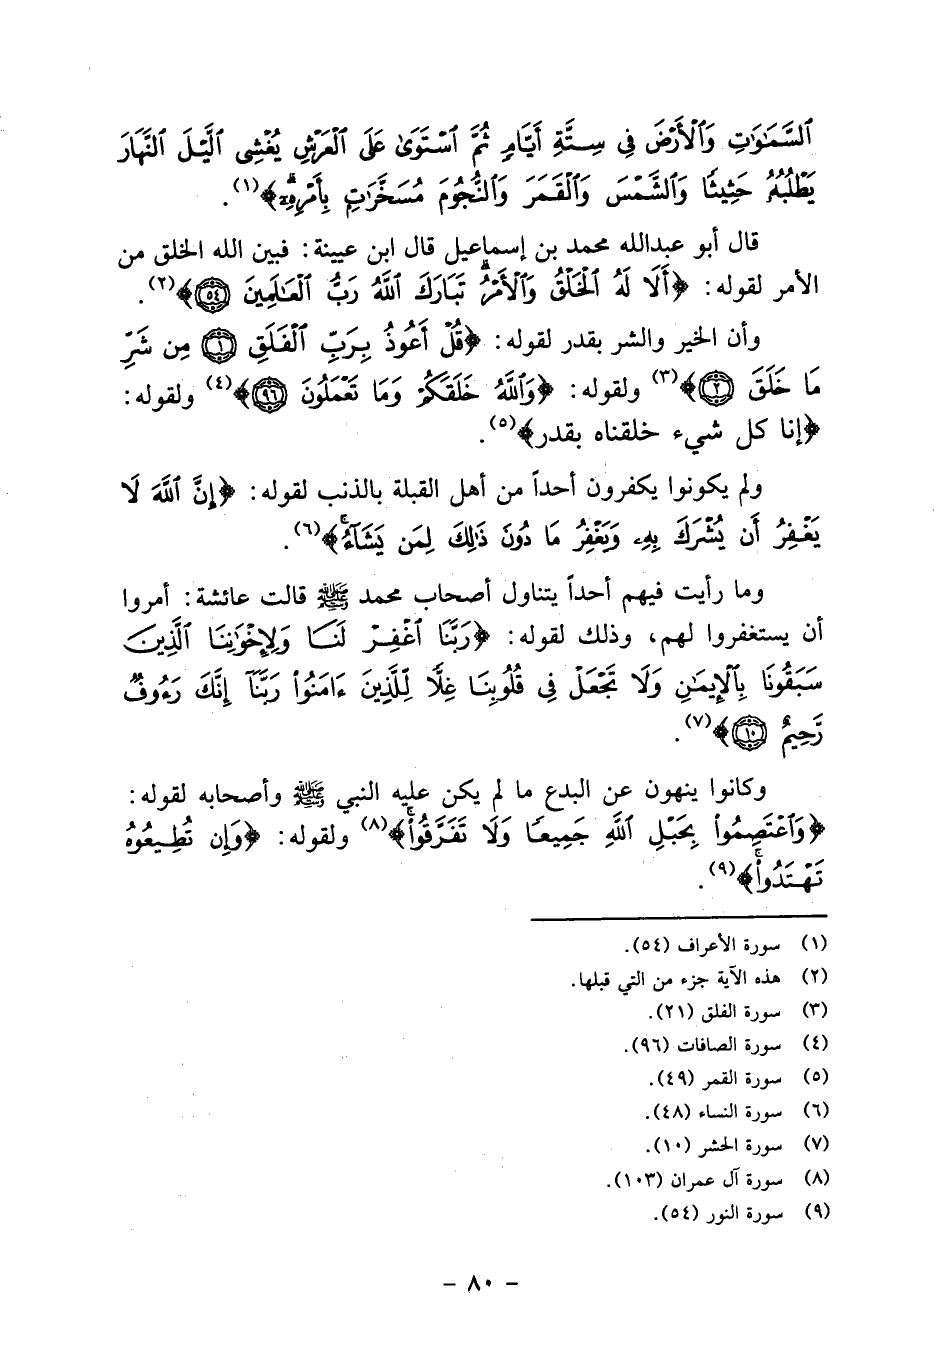 السَّمَٰوَٰتِ وَالْأَرْضَ فِي سِتَّةِ أَيَّامٍ ثُمَّ اسْتَوَىٰ عَلَى الْعَرْشِ يُغْشِي الَّيْلَ النَّهَارَ
يَطْلُبُهُ حَثِيثًا وَالشَّمْسَ وَالْقَمَرَ وَالنُّجُومَ مُسَخَّرَٰتٍ بِأَمْرِهِۦٓ﴾(١).
قال أبو عبدالله محمد بن إسماعيل قال ابن عيينة: فبين الله الخلق من
الأمر لقوله: ﴿أَلَا لَهُ الْخَلْقُ وَالْأَمْرُ تَبَارَكَ اللَّهُ رَبُّ الْعَٰلَمِينَ ٥٤﴾(٢).
وأن الخير والشر بقدر لقوله: ﴿قُلْ أَعُوذُ بِرَبِّ الْفَلَقِ ١ مِن شَرِّ
مَا خَلَقَ ٢﴾(٣) ولقوله: ﴿وَاللَّهُ خَلَقَكُمْ وَمَا تَعْمَلُونَ ٩٦﴾(٤) ولقوله:
﴿إنا كل شيء خلقناه بقدر﴾(٥).
ولم يكونوا يكفرون أحداً من أهل القبلة بالذنب لقوله: ﴿إِنَّ اللَّهَ لَا
يَغْفِرُ أَن يُشْرَكَ بِهِۦ وَيَغْفِرُ مَا دُونَ ذَٰلِكَ لِمَن يَشَآءُ﴾(٦).
وما رأيت فيهم أحداً يتناول أصحاب محمد ﷺ قالت عائشة: أمروا
أن يستغفروا لهم، وذلك لقوله: ﴿رَبَّنَا اغْفِرْ لَنَا وَلِإِخْوَٰنِنَا الَّذِينَ
سَبَقُونَا بِالْإِيمَٰنِ وَلَا تَجْعَلْ فِي قُلُوبِنَا غِلًّا لِّلَّذِينَ ءَامَنُوا رَبَّنَآ إِنَّكَ رَءُوفٌ
رَّحِيمٌ ١٠﴾(٧).
وكانوا ينهون عن البدع ما لم يكن عليه النبي ﷺ وأصحابه لقوله:
﴿وَاعْتَصِمُوا بِحَبْلِ اللَّهِ جَمِيعًا وَلَا تَفَرَّقُوا﴾(٨) ولقوله: ﴿وَإِن تُطِيعُوهُ
تَهْتَدُوا﴾(٩).
(١) سورة الأعراف (٥٤).
(٢) هذه الآية جزء من التي قبلها.
(٣) سورة الفلق (٢١).
(٤) سورة الصافات (٩٦).
(٥) سورة القمر (٤٩).
(٦) سورة النساء (٤٨).
(٧) سورة الحشر (١٠).
(٨) سورة آل عمران (١٠٣).
(٩) سورة النور (٥٤).
– ٨٠ –